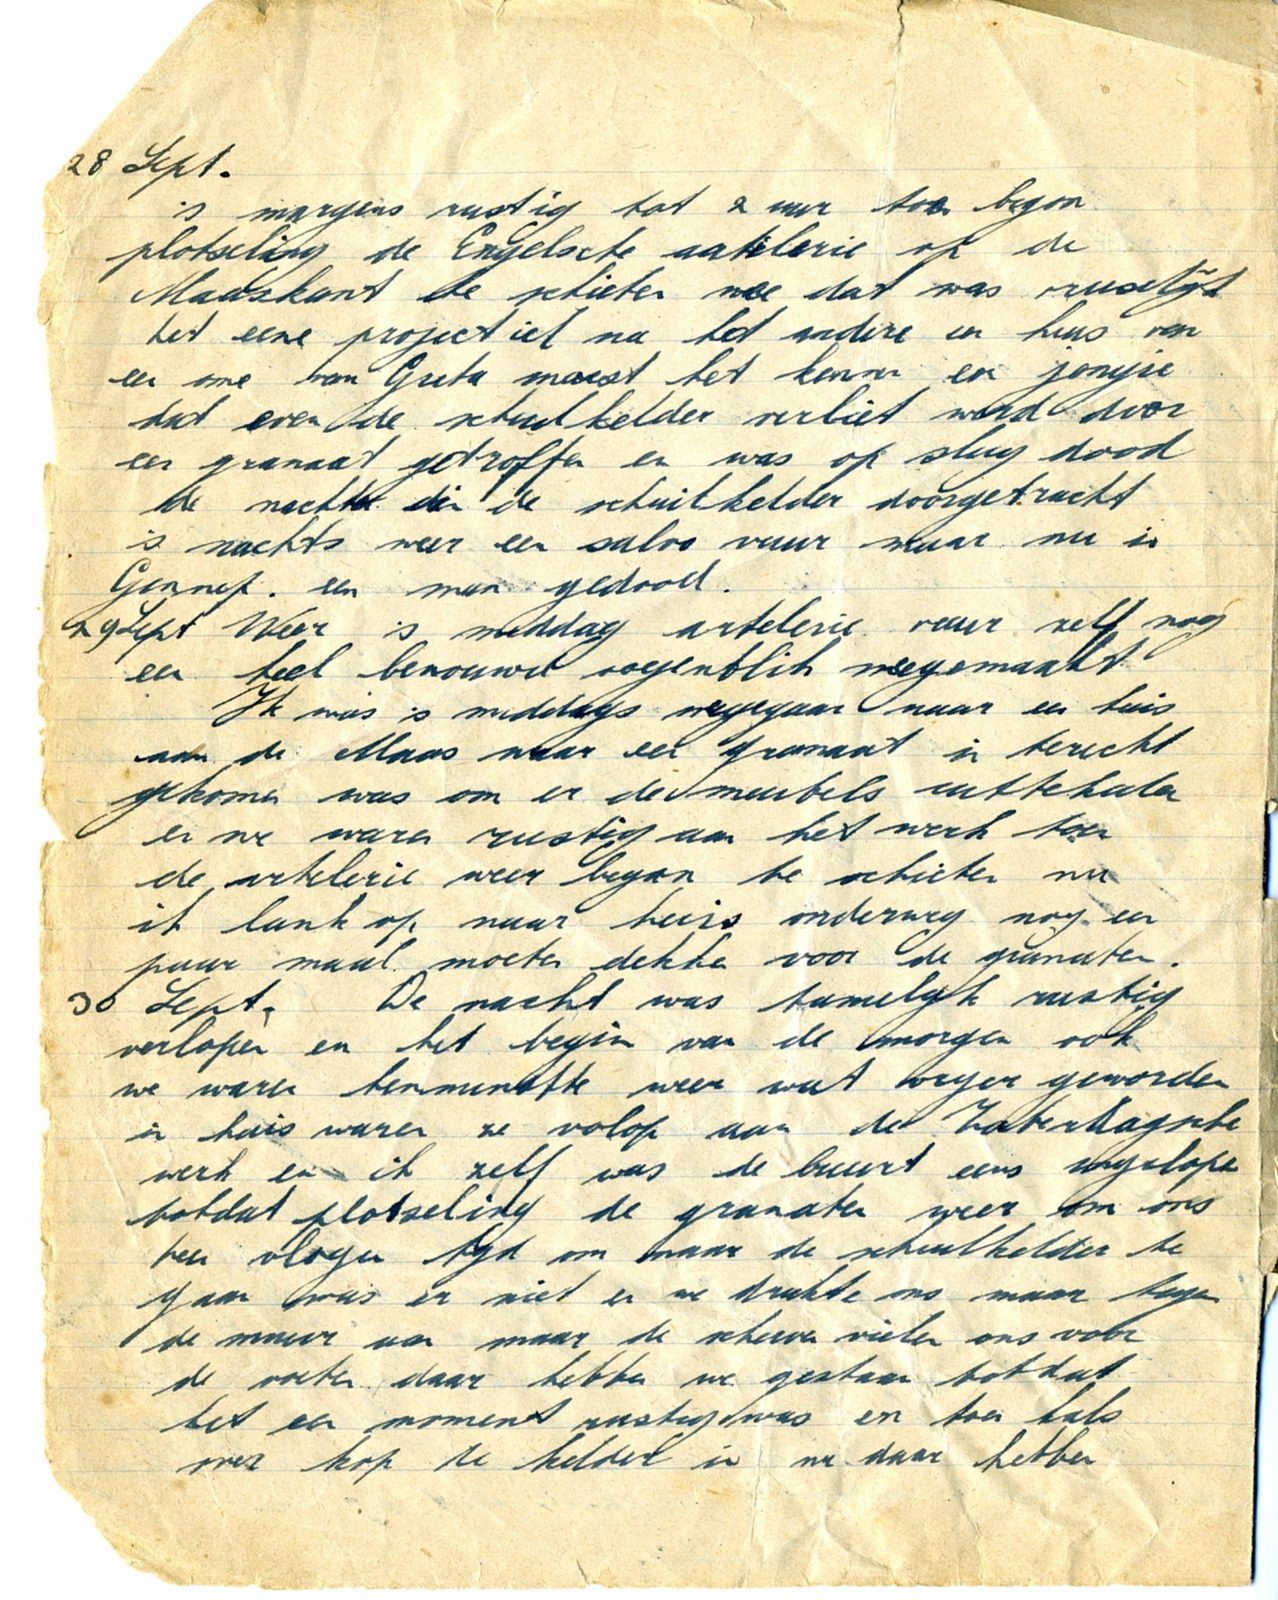 28 Sept.
is morgens rustig tot 2 uur toen begon
plotseling de Engelsche aatilerie op de
Maaskant te schieten noe dat was vreselijk
het eene projectiel na het andere en huis van
een ome van Greta moest het kennen en jongsie
dat even de schuilkelder verliet werd door
een granaat getroffen en was op slag dood
de nacht in de schuilkelder doorgebracht
is nachts weer een salvo vuur maar nu in
Gennep. een man gedood.
29 Sept Weer is middag artelerie vuur zelf nog
een heel benouwd oogenblik meegemaakt
Ik was is middags meegegaan naar een huis
aan de Maas waar een granaat in terecht
gekomen was om er de meubels uittehalen
en we waren rustig aan het werk toen
de artelerie weer begon te schieten nu
ik lank op naar huis onderweg nog een
paar maal moeten dekken voor de granaten.
30 Sept. De nacht was tamelijk rustig
verlopen en het begin van de morgen ook
we waren tenminste weer wat geworden
in huis waren ze volop aan de Zaterdagsche
werk en ik zelf was de buurt eens ingelopen
totdat plotseling de granaten weer om ons
heen vlogen tijd om naar de schuilkelder te
gaan was er niet en we drukte ons maar tegen
de muur aan maar de scherven vielen ons voor
de voeten daar hebben we gestaan totdat
het een moment rustig was en toen hals
over kop de kelder in nu daar hebben